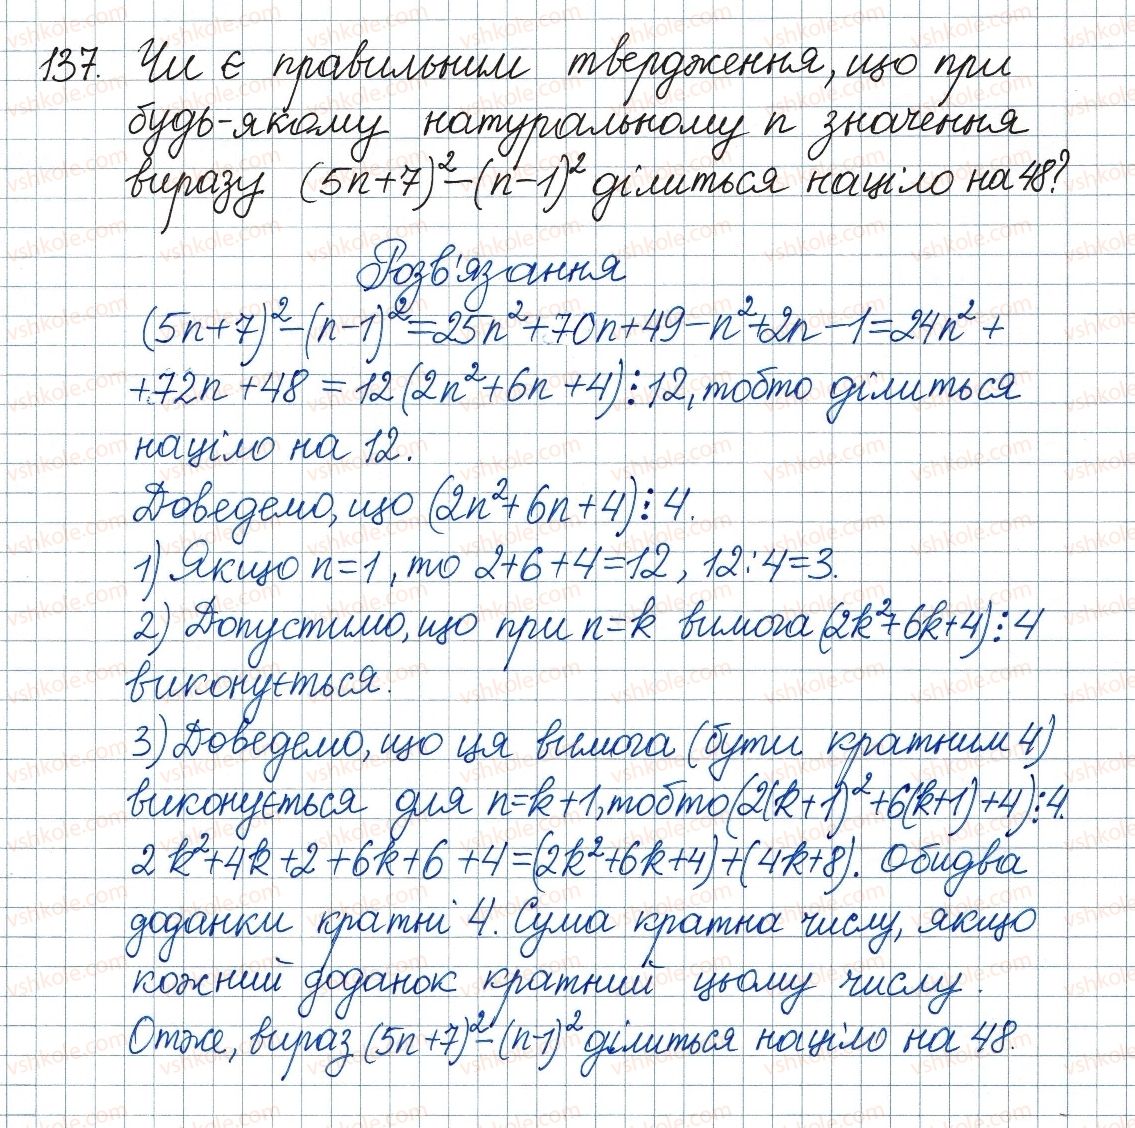 137. Чи є правильним твердження, що при
будь-якому натуральному n значення
виразу (5n+7)²-(n-1)² ділиться націло на 48?
Розв'язання
(5n+7)²-(n-1)²=25n²+70n+49-n²+2n-1=24n²+
+72n+48=12(2n²+6n+4)⋮12, тобто ділиться
націло на 12.
Доведемо, що (2n²+6n+4)⋮4.
1) Якщо n=1, то 2+6+4=12, 12:4=3.
2) Допустимо, що при n=k вимога (2k²+6k+4)⋮4
виконується.
3) Доведемо, що ця вимога (бути кратним 4)
виконується для n=k+1, тобто (2(k+1)²+6(k+1)+4)⋮4.
2k²+4k+2+6k+6+4=(2k²+6k+4)+(4k+8). Обидва
доданки кратні 4. Сума кратна числу, якщо
кожний доданок кратний цьому числу.
Отже, вираз (5n+7)²-(n-1)² ділиться націло на 48.